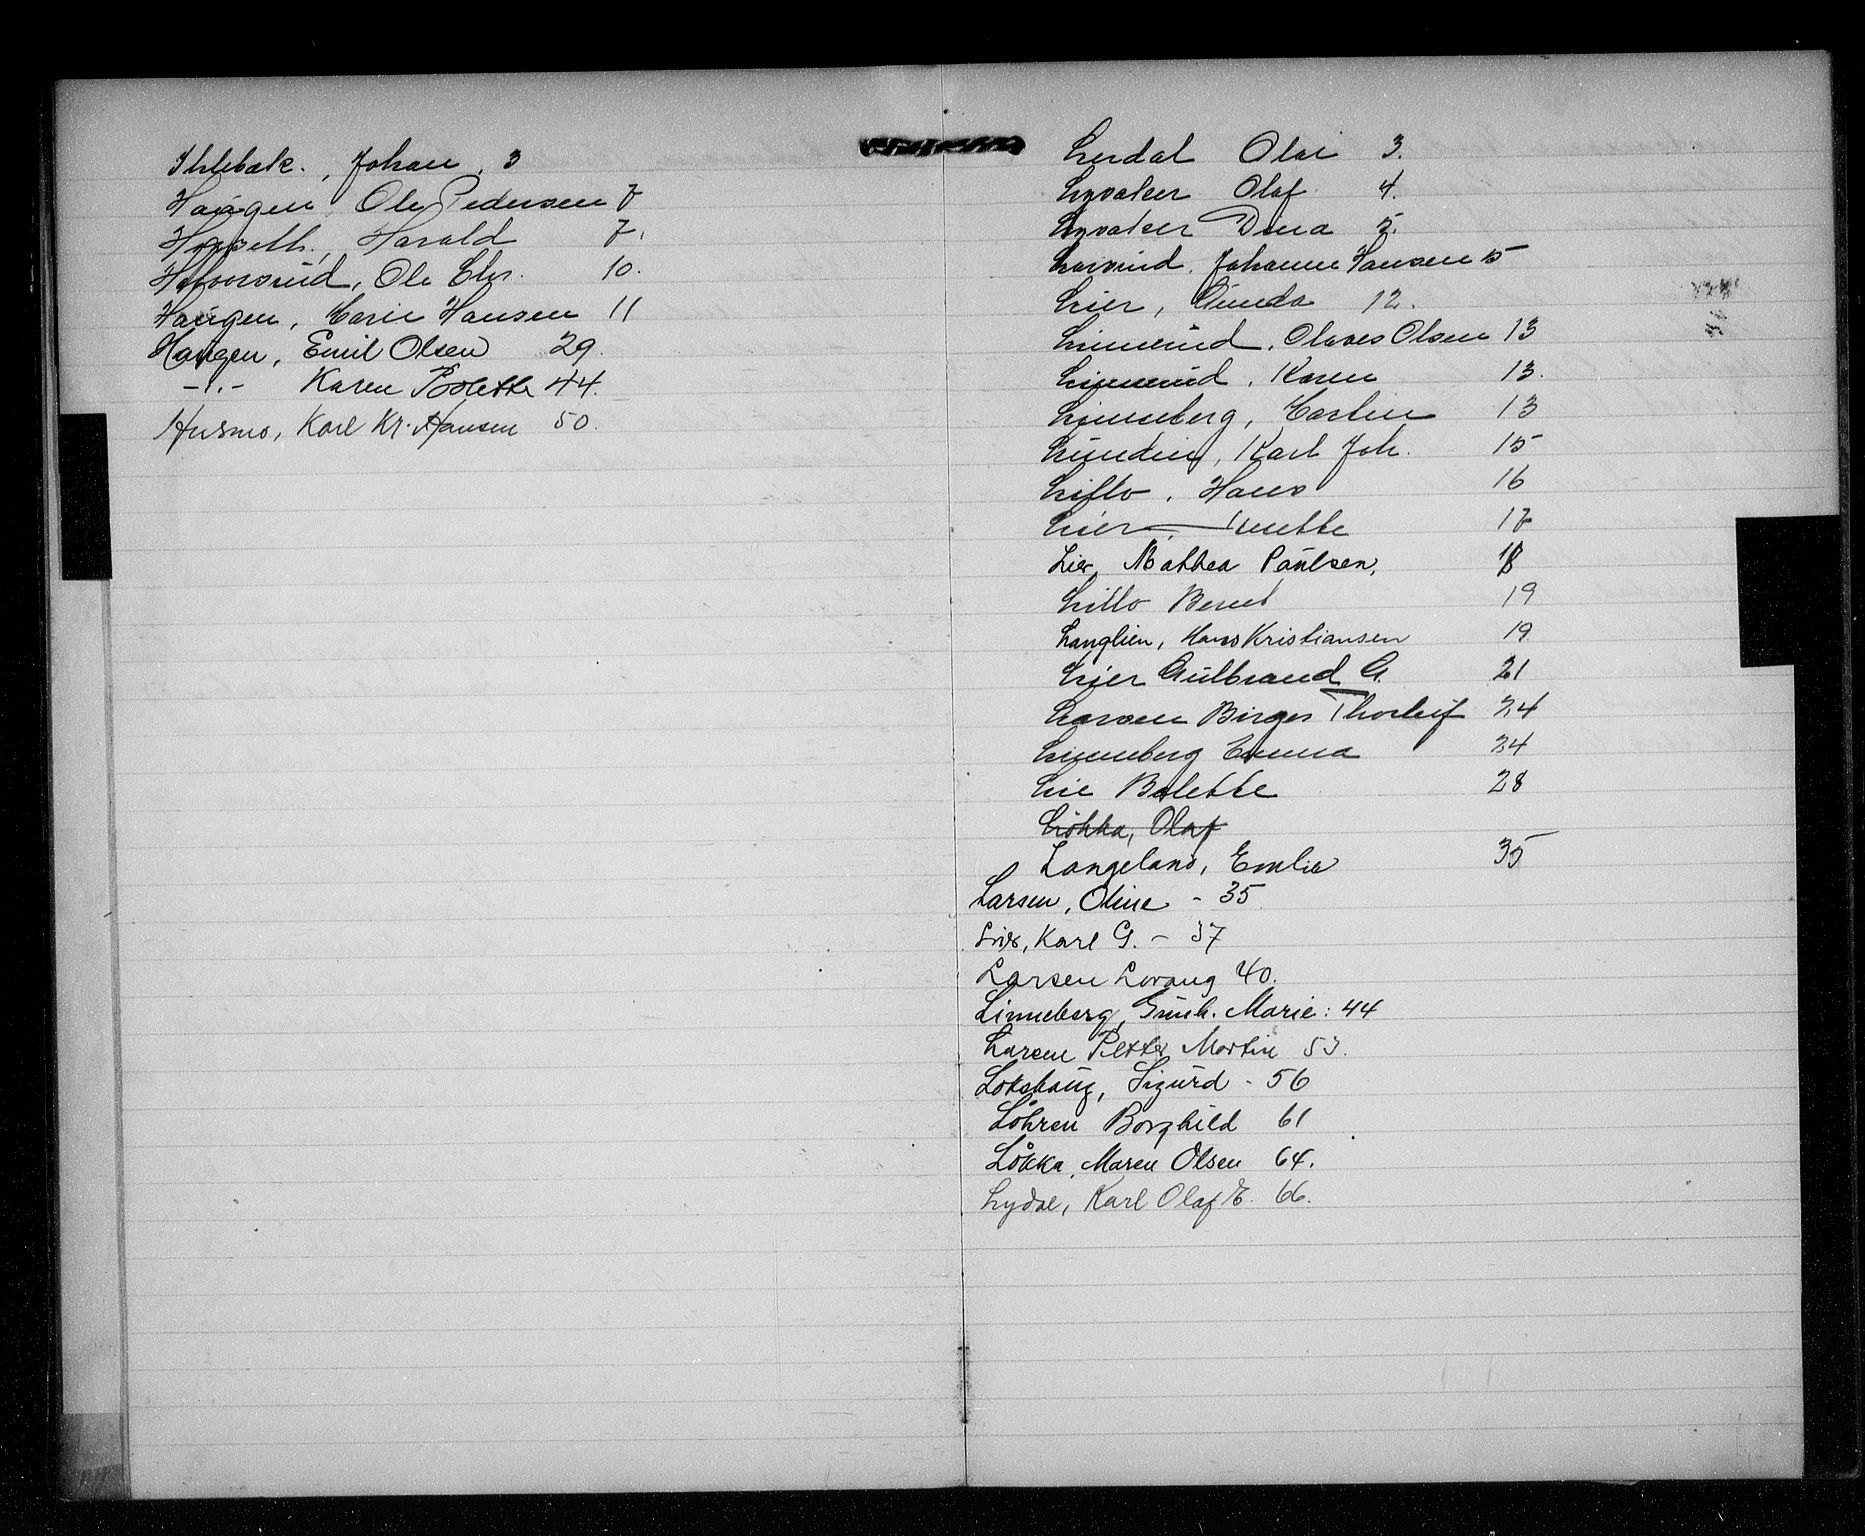 Ihlebæk., Johan, 3
Haugen, Ole Pedersen 7
Harald 7.
Halvorsrud, Ole Chr. 10.
Haugen, Marie Hansen 11
Haugen, Emil Olsen 29.
-"- Karen Bolette 44.
Husmo, Karl Kr. Hansen 50.
Lerdal Olai 3.
Lysaker Olaf 4.
Lysaker Dina 5.
Johanne Hansen 5
Lier, Gunda 12.
Linnerud, Olaves Olsen 13
Linnerud, Karen 13.
Linneberg, Martin 13
Lundin, Karl Joh. 15
Hans 16
Lier, Anette 17
Lier, Mathea Paulsen, 18
Lillo Bernt 19
Langlien, Hans Kristiansen 19
Lier Gulbrand G. 21
Larsen Birger Thorleif 24
Linneberg Emma 24
Lie Bolette 28
Løkka, Olaf
Langeland, Emlie 35
Larsen, Oline - 35
Lier, Karl G. - 37
Larsen Lovang 40.
Linneberg, Gunh. Marie: 44
Larsen Petter Martin 53.
Lokshaug, Sigurd - 56
Løhren Borghild 61
Løkka, Maren Olsen 64.
Lydal, Karl Olaf E. 66.